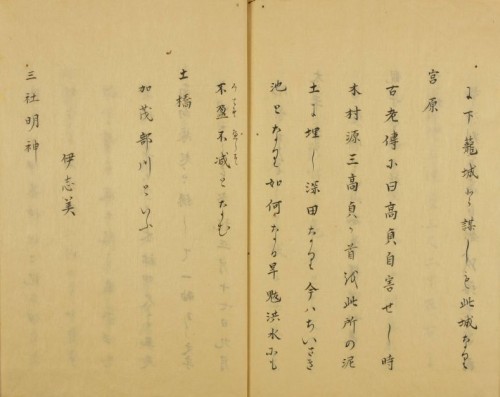 下籠城と謀しも此城なり
宮原
古老傳に曰高貞自害せし時
木村源三高貞か首を此所の泥
土に埋し深田なり今ハちいさき
池となり如何なる旱魃洪水にも
不盈不減となむ
土橋
加茂部川といふ
伊志美
三社明神